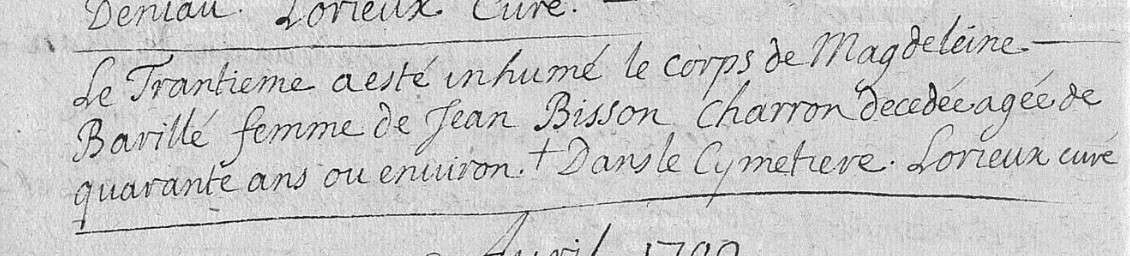 Deniau. Lorieux Curé.
Le Trantieme a esté inhumé le corps de Magdeleine
Barillé femme de Jean Bisson charron decedée agée de
quarante ans ou environ. + Dans le Cymetiere. Lorieux curé
Avril